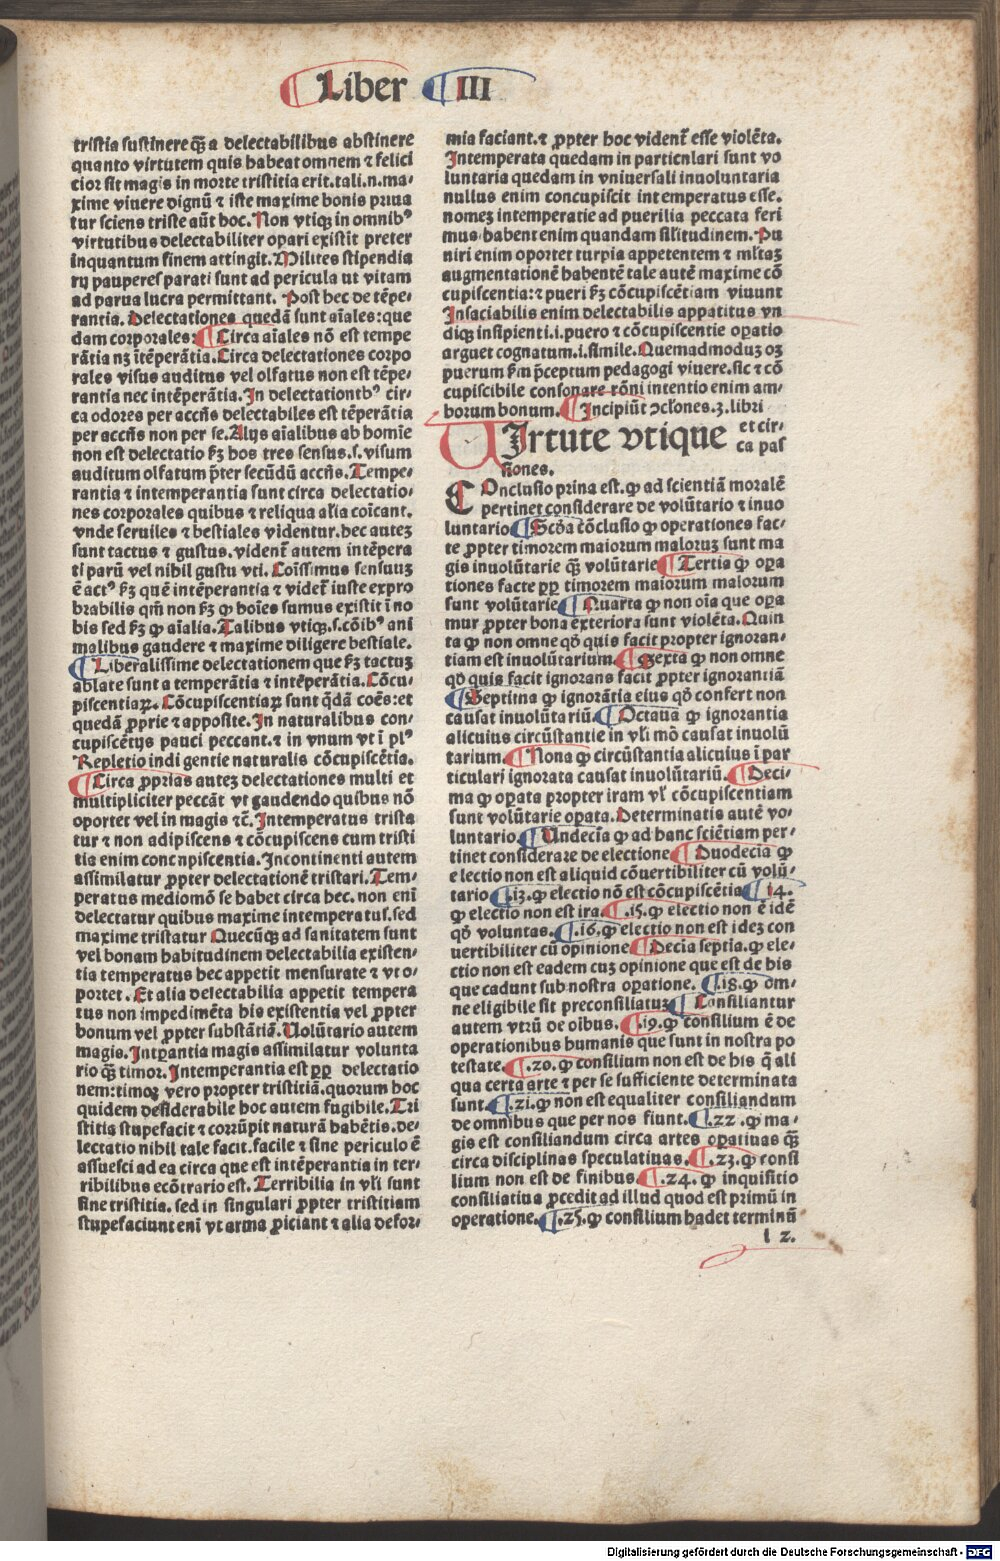 Liber III
tristia sustinere q̄ȝ a delectabilibus abstinere
quanto virtutem quis habeat omnem ⁊ felici
cior sit magis in morte tristitia erit.tali.n.ma-
xime viuere dignū ⁊ iste maxime bonis priua
tur sciens triste aūt hoc.Non vtiqȝ in omnibꝰ
virtutibus delectabiliter opari existit preter
inquantum finem attingit.Milites stipendia
rij pauperes parati sunt ad pericula ut vitam
ad parua lucra permittant. Post hec de tēpe-
rantia. Delectationes quedā sunt aīales:que
dam corporales: Circa aīales nō est tempe
rātia nȝ ītēperātia.Circa delectationes corpo
rales visus auditus vel olfatus non est tēpe-
rantia nec intēperātia.In delectationibꝰ cir-
ca odores per accn̄s delectabiles est tēperātia
per accn̄s non per se.Alijs aīalibus ab homīe
non est delectatio ẜȝ hos tres sensus.s.visum
auditum olfatum p̄ter secūdū accn̄s.Tempe-
rantia ⁊ intemperantia sunt circa delectatio-
nes corporales quibus ⁊ reliqua aīalia cōicant.
vnde seruiles ⁊ bestiales videntur.hec auteȝ
sunt tactus ⁊ gustus.vident̄ autem intēpera
ti parū vel nihil gustu vti. Cōissimus sensuuȝ
ē actꝰ ẜȝ quē intēperantia ⁊ videt̄ iuste expro
brabilis qm̄ non ẜȝ ꝙ hoīes sumus existit ī no
bis sed ẜȝ ꝙ aīalia.Talibus vtiqȝ.s.cōibꝰ ani
malibus gaudere ⁊ maxime diligere bestiale.
Liberalissime delectationem que ẜȝ tactuȝ
ablate sunt a temperātia ⁊ intēperātia.Cōcu-
piscentiaꝝ. Cōcupiscentiaꝝ sunt q̄dā coēs:et
quedā ꝓprie ⁊ apposite.In naturalibus con-
cupiscētijs pauci peccant.⁊ in vnum vt ī plꝰ
Repletio indi gentie naturalis cōcupiscētia.
Circa ꝓprias auteȝ delectationes multi et
multipliciter peccāt vt gaudendo quibus nō
oportet vel in magis ⁊c̄.Intemperatus trista
tur ⁊ non adipiscens ⁊ cōcupiscens cum tristi
tia enim concnpiscentia.Incontinenti autem
assimilatur ꝓpter delectationē tristari.Tem-
peratus mediomō se habet circa hec.non enī
delectatur quibus maxime intemperatus.sed
maxime tristatur Quecūqȝ ad sanitatem sunt
vel bonam habitudinem delectabilia existen-
tia temperatus hec appetit mensurate ⁊ vt o-
portet. Et alia delectabilia appetit tempera
tus non impedimēta his existentia vel ꝓpter
bonum vel ꝓpter substātiā.Volūtario autem
magis.Intꝑantia magis assimilatur volunta
rio q̄ȝ timor.Intemperantia est ꝓp delectatio
nem:timor vero propter tristitiā.quorum hoc
quidem desiderabile hoc autem fugibile.Tri
stitia stupefacit ⁊ corrūpit naturā habētis.de-
lectatio nihil tale facit.facile ⁊ sine periculo ē
assuesci ad ea circa que est intēperantia in ter-
ribilibus ecōtrario est. Terribilia in vl̄i sunt
sine tristitia. sed in singulari ꝓpter tristitiam
stupefaciunt enī vt arma ꝓiciant ⁊ alia defor-
mia faciant.⁊ ꝓpter hoc vident̄ esse violēta.
Intemperata quedam in particnlari sunt vo
luntaria quedam in vniuersali inuoluntaria
nullus enim concupiscit intemperatus esse.
nomeȝ intemperatie ad puerilia peccata feri
mus habent enim quandam sil̄itudinem.Pu
niri enim oportet turpia appetentem ⁊ ml̄taȝ
augmentationē habentē tale autē maxime cō
cupiscentia:⁊ pueri ẜȝ cōcupiscētiam viuunt
Insaciabilis enim delectabilis appatitus vn
diqȝ insipienti.i.puero ⁊ cōcupiscentie oꝑatio
arguet cognatum.i.simile.Quemadmoduȝ oȝ
puerum ẜm p̄ceptum pedagogi viuere.sic ⁊ cō
cupiscibile consonare rōni intentio enim am-
borum bonum. Incipiūt ↄcl̄ones.3.libri
VIrtute vtique et cir-
ca pas
siones.
COnclusio prina est.ꝙ ad scientiā moralē
pertinet considerare de volūtario ⁊ inuo
luntario Scd̄a cōclusio ꝙ operationes fac-
te ꝓpter timorem maiorum maloruȝ sunt ma
gis inuolūtarie q̄ȝ volūtarie Tertia ꝙ oꝑa
tiones facte ꝓp timorem maiorum malorum
sunt volūtarie Quarta ꝙ non oīa que oꝑa
mur ꝓpter bona exteriora sunt violēta.Quin
ta ꝙ non omne qd̄ quis facit propter ignoran-
tiam est inuolūtarium. Sexta ꝙ non omne
qd̄ quis facit ignorans facit ꝓpter ignorantiā
Septina ꝙ ignorātia eius qd̄ confert non
causat inuolūta riū. Octaua ꝙ ignorantia
alicuius circūstantie in vl̄i mō causat inuolū
tarium. Nona ꝙ circūstantia alicuius ī par
ticulari ignorata causat inuolūtariū. Deci-
ma ꝙ oꝑata propter iram vl̄ cōcupiscentiam
sunt volūtarie oꝑata.Determinatis autē vo-
luntario. Undecīa ꝙ ad hanc sciētiam per-
tinet considerare de electione Duodecīa ꝙ
e lectio non est aliquid cōuertibiliter cū volū-
tario .13.ꝙ electio nō est cōcupiscētia 14.
ꝙ electio non est ira. .15.ꝙ electio non ē idē
qd̄ voluntas. .16.ꝙ electio non est ideȝ con
uertibiliter cū opinione Decīa septīa.ꝙ ele-
ctio non est eadem cuȝ opinione que est de his
que cadunt sub nostra oꝑatione. .18.ꝙ om-
ne eligibile sit preconsiliatuȝ Consiliantur
autem vtrū de oībus. .19.ꝙ consilium ē de
operationibus humanis que sunt in nostra po
testate. .20.ꝙ consilium non est de his q̄ ali
qua certa arte ⁊ per se sufficiente determinata
sunt. .21.ꝙ non est equaliter consiliandum
de omnibus que per nos fiunt. .22.ꝙ ma-
gis est consiliandum circa artes oꝑatiuas q̄ȝ
circa disciplinas speculatiuas. .23.ꝙ consi
lium non est de finibus. .24. ꝙ inquisitio
consiliatiua ꝓcedit ad illud quod est primū in
operatione. .25.ꝙ consilium hadet terminū
l 2.
Digitalisierung gefördert durch die Deutsche Forschungsgemeinschaft - DFG